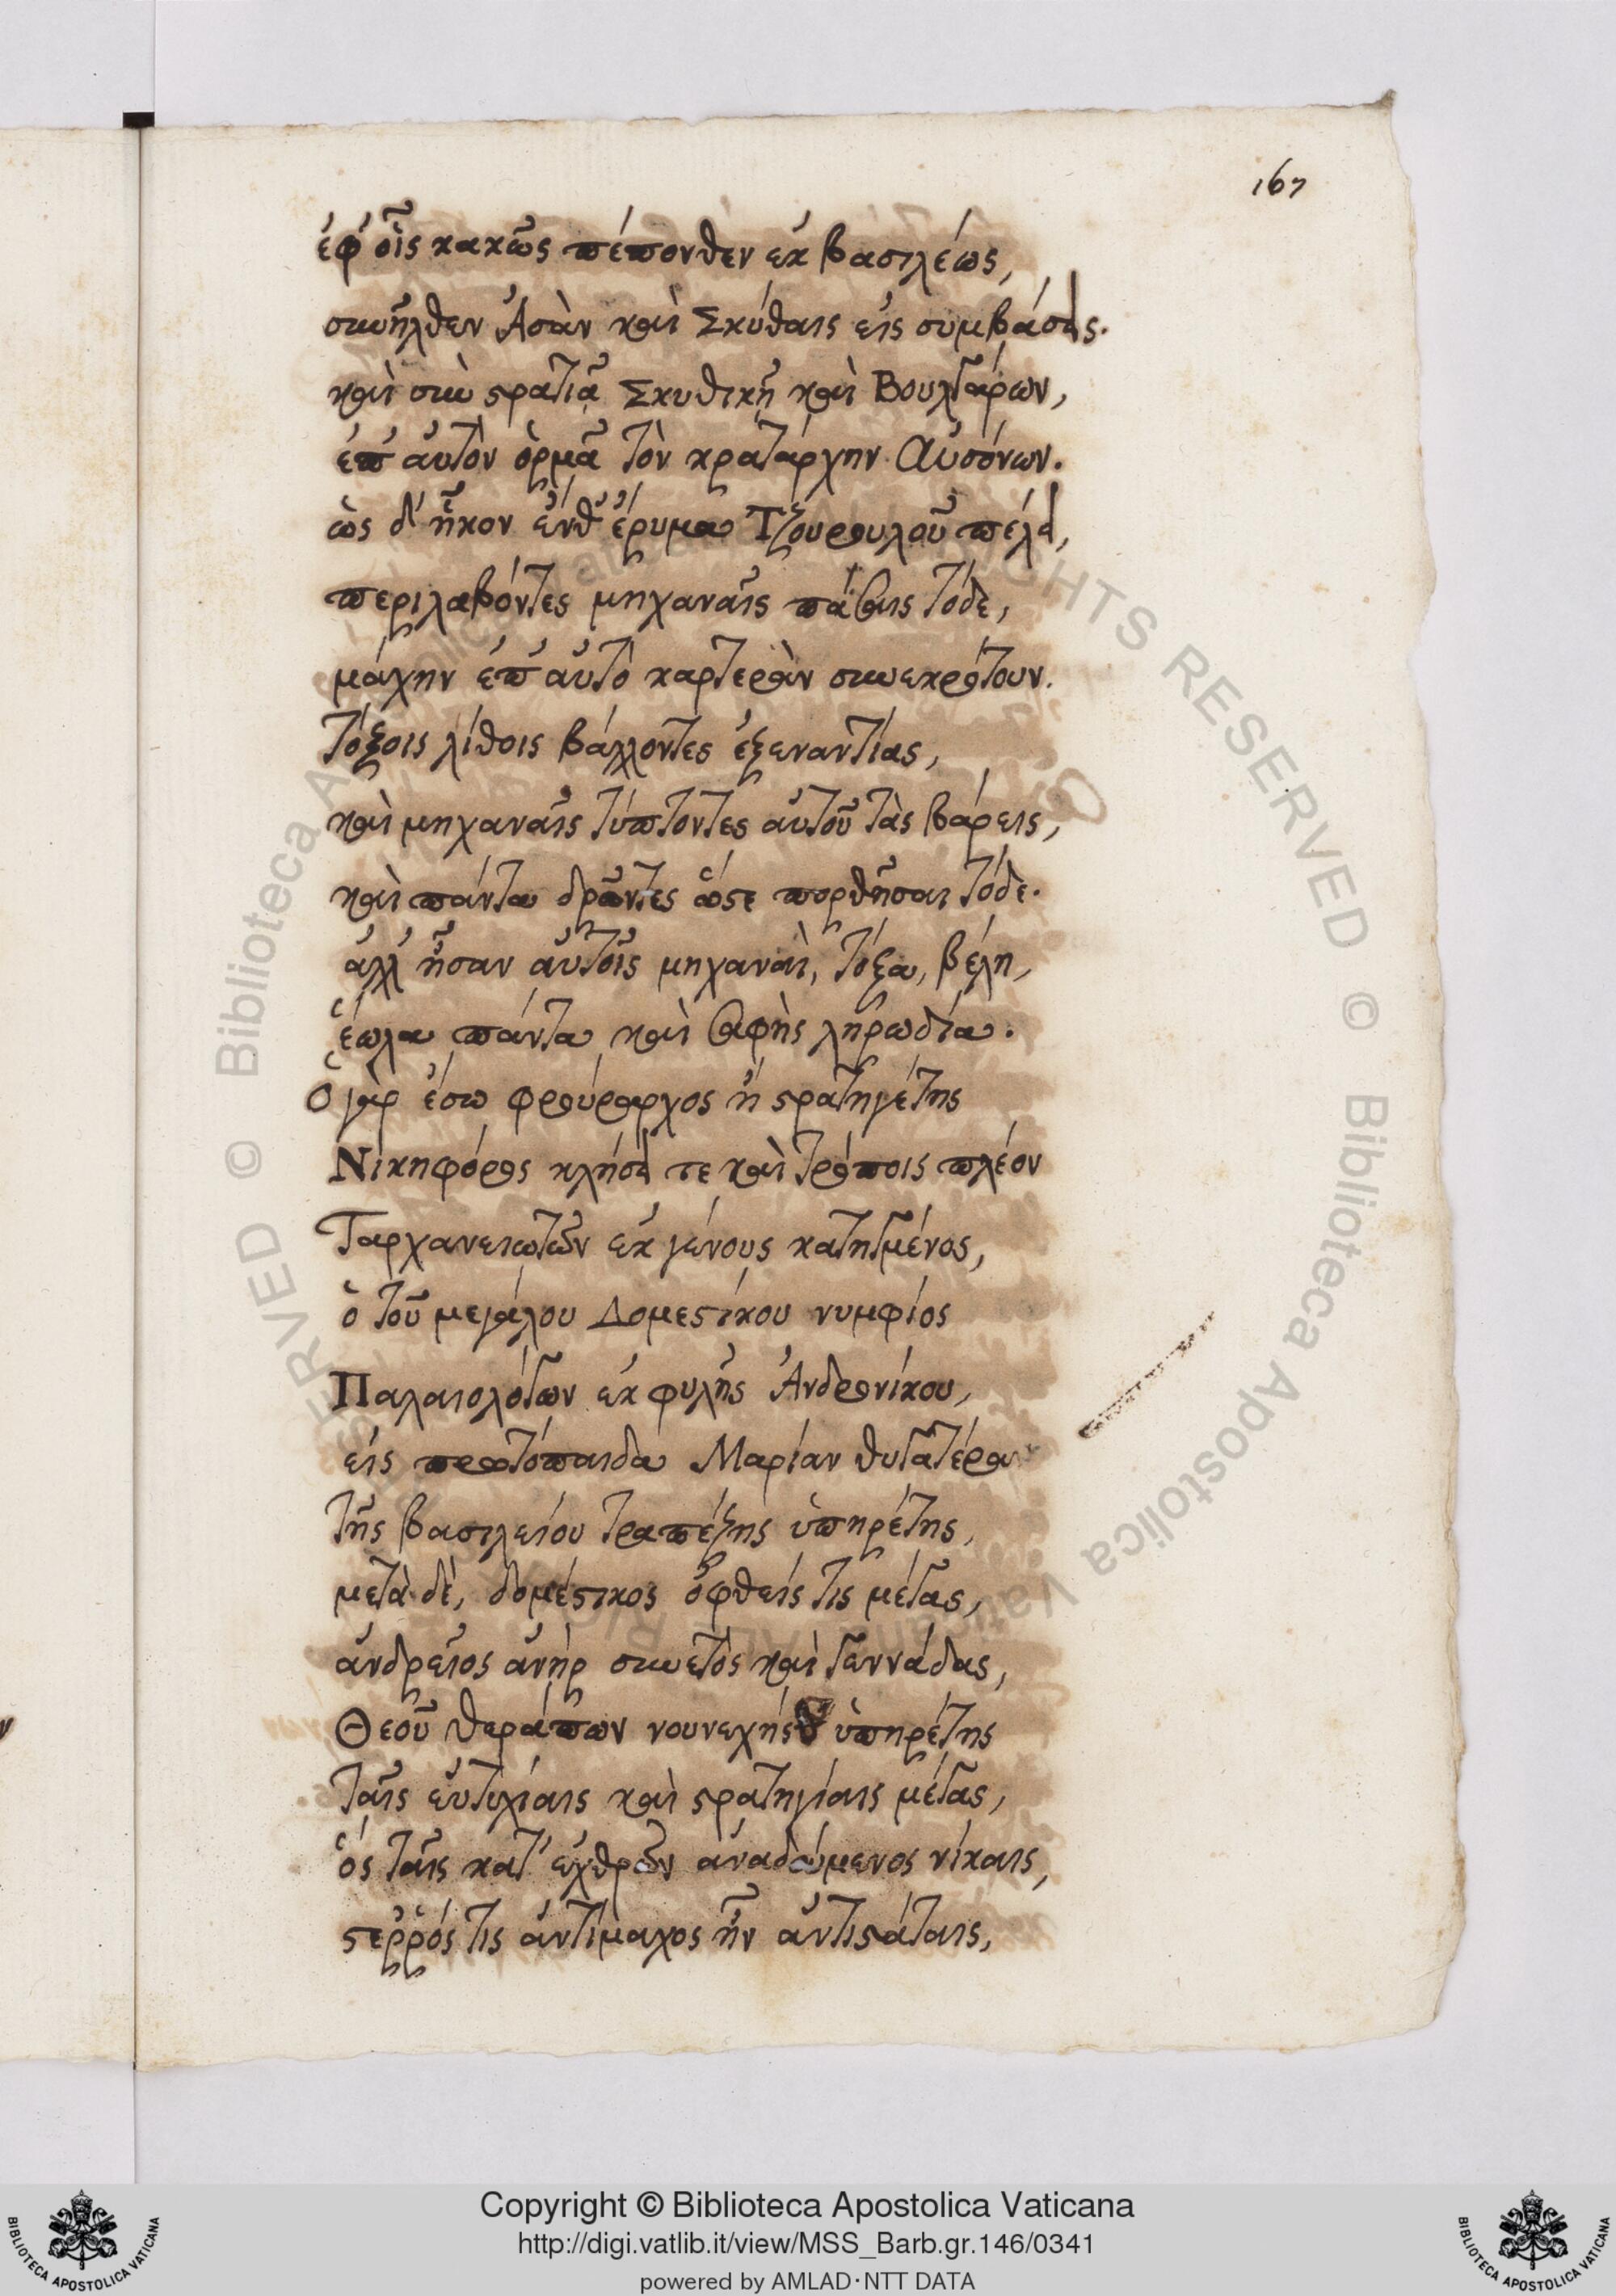 167
ἐφ' οἷς κακῶς πέπονθεν ἐκ βασιλέως,
συνῆλθεν Ἀσὰν καὶ Σκύθαις εἰς συμβάσεις.
καὶ σὺν στρατιᾷ Σκυθικῇ καὶ Βουλγάρων,
ἐπ' αὐτὸν ὁρμᾷ τὸν κρατάρχην Αὐσόνων.
ὡς δ' ἧκον ἔνθ' ἔρυμα Τζουρουλοῦ πέλει,
περιλαβόντες μηχαναῖς πάσαις τόδε,
μάχην ἐπ' αὐτὸ καρτερὰν συνεκρότουν.
τόξοις λίθοις βάλλοντες ἐξεναντίας,
καὶ μηχαναῖς τύπτοντες αὐτοῦ τὰς βάρεις,
καὶ πάντα δρῶντες ὥστε πορθῆσαι τόδε.
ἀλλ' ἦσαν αὐτοῖς μηχαναὶ, τόξα, βέλη,
ἕωλα πάντα καὶ σαφὴς ληρωδία.
Ὁ γὰρ ἔσω φρούραρχος ἢ στρατηγέτης
Νικηφόρος κλήσει τε καὶ τρόποις πλέον
Ταρχανειωτῶν ἐκ γένους κατηγμένος,
ὁ τοῦ μεγάλου Δομεστίκου νυμφίος
Παλαιολόγων ἐκ φυλῆς Ἀνδρονίκου,
εἰς πρωτόπαιδα Μαρίαν θυγατέρα
τῆς βασιλείου τραπέζης ὑπηρέτης,
μετὰ δὲ, δομέστικος ὀφθείς τις μέγας,
ἀνδρεῖος ἀνὴρ συνετὸς καὶ γεννάδας,
Θεοῦ θεράπων νουνεχής ὑπηρέτης
ταῖς εὐτυχίαις καὶ στρατηγίαις μέγας,
ὃς ταῖς κατ' ἐχθρῶν ἀναδούμενος νίκαις,
στεῤῥός τις ἀντίμαχος ἦν ἀντιστάταις,
© Biblioteca Apostolica Vaticana ALL RIGHTS RESERVED © Biblioteca Apostolica Vaticana ALL RIGHTS RESERVED
Copyright © Biblioteca Apostolica Vaticana
http://digi.vatlib.it/view/MSS_Barb.gr.146/0341
powered by AMLAD·NTT DATA
BIBLIOTECA APOSTOLICA VATICANA
BIBLIOTECA APOSTOLICA VATICANA